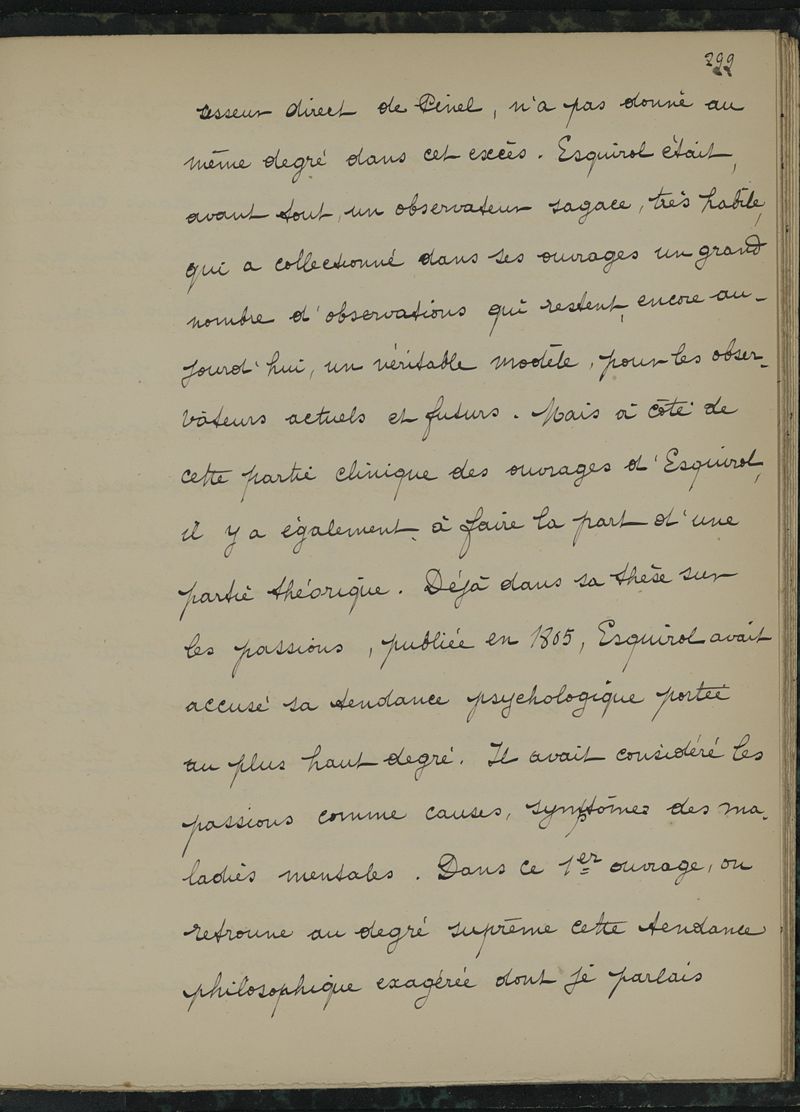 299
cesseur direct de Pinel, n'a pas donné au
même degré dans cet excès. Esquirol était,
avant tout, un observateur sagace, très habile,
qui a collectionné dans ses ouvrages un grand
nombre d'observations qui restent, encore au-
jourd'hui, un véritable modèle, pour les obser-
vateurs actuels et futurs. Mais à côté de
cette partie clinique des ouvrages d'Esquirol,
il y a également à faire la part d'une
partie théorique. Déjà dans sa thèse sur
les passions, publiée en 1805, Esquirol avait
accusé sa tendance psychologique portée
au plus haut degré. Il avait considéré les
passions comme causes, symptômes des ma-
ladies mentales. Dans ce 1er ouvrage, on
retrouve au degré suprême cette tendance
philosophique exagérée dont je parlais